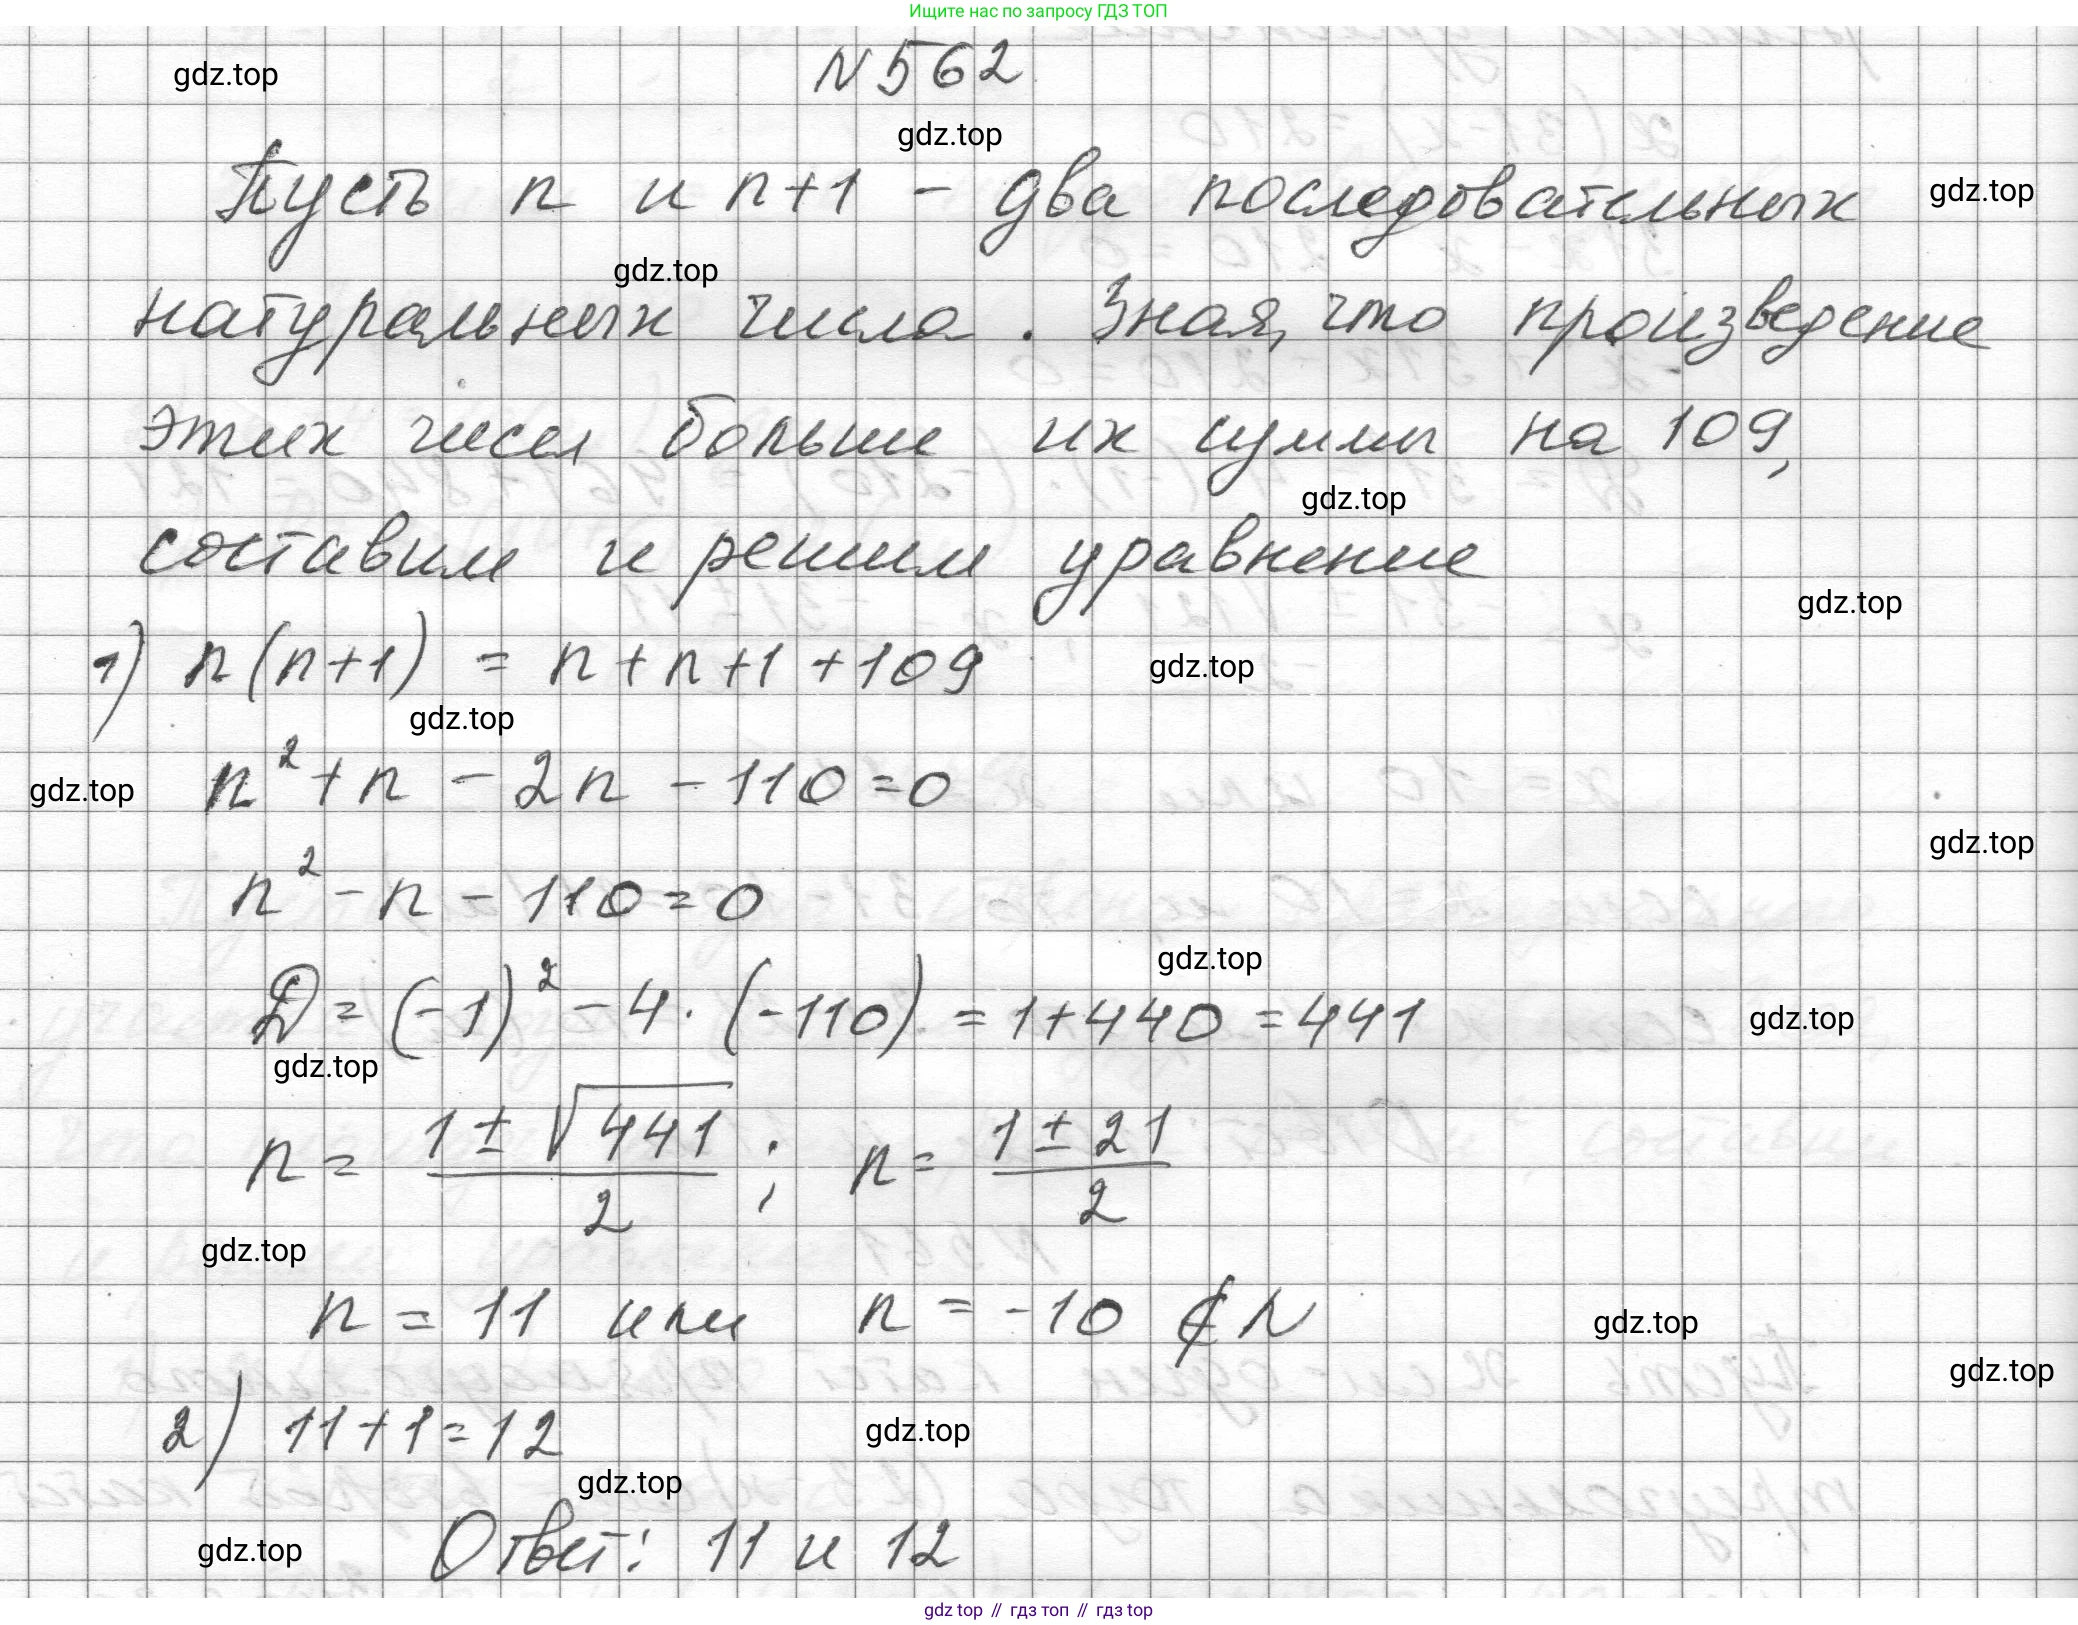 Ищите нас по запросу ГДЗ ТОП
N 562
gdz.top
gdz.top
Пусть n и n+1 - два последовательных
gdz.top
gdz.top
натуральных числа. Зная, что произведение
этих чисел больше их суммы на 109,
gdz.top
составим и решим уравнение
gdz.top
1) n(n+1) = n+n+1+109
gdz.top
gdz.top
n²+n-2n-110=0
gdz.top
gdz.top
n²-n-110=0
gdz.top
D=(-1)²-4·(-110)=1+440=441
gdz.top
gdz.top
n= (1±√441)/2 ; n= (1±21)/2
gdz.top
n=11 или n=-10 ∉ N
gdz.top
gdz.top
2) 11+1=12
gdz.top
gdz.top
Ответ: 11 и 12
gdz.top
gdz top // гдз топ // гдз top